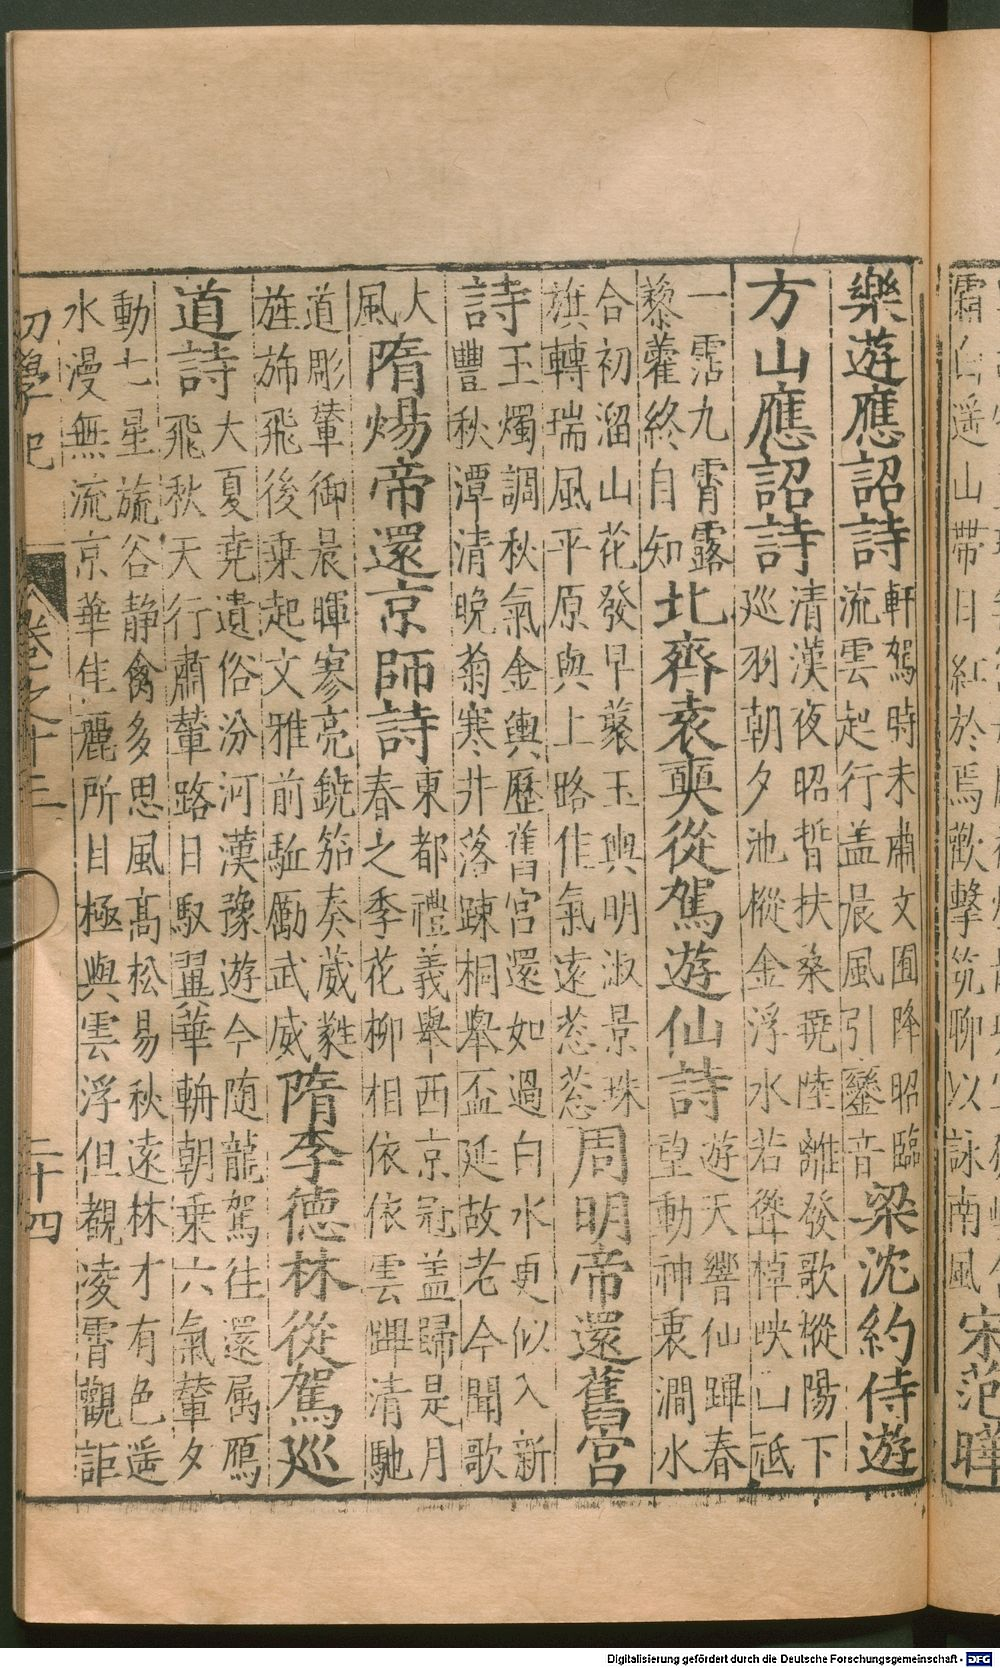 霜白遥山帶日紅於焉歡擊筑聊以詠南風
宋范曄
樂遊應詔詩
軒駕時未肅文囿降昭臨
流雲起行盖晨風引鑾音
梁沈約侍遊
方山應詔詩
清漢夜昭晢扶桑曉陸離發歌樅陽下
巡羽朝夕池樅金浮水若聳棹映山祗
一霑九霄露
藜藿終自知
北齊袁奭從駕遊仙詩
遊天響仙蹕春
望動神衷澗水
合初溜山花發早蘂玉輿明淑景珠
旗轉瑞風平原與上路佳氣遠葱葱
周明帝還舊宮
詩
玉燭調秋氣金輿歷舊宮還如過白水更似入新
豐秋潭清晚菊寒井落踈桐舉盃延故老今聞歌
大
風
隋煬帝還京師詩
東都禮義舉西京冠盖歸是月
春之季花柳相依依雲蹕清馳
道彫輦御晨暉寥亮鐃笳奏葳蕤
旌斾飛後乗起文雅前駈勵武威
隋李德林從駕巡
道詩
大夏尭遺俗汾河漢豫遊今随龍駕往還属鴈
飛秋天行肅輦路日馭翼華輈朝乗六氣輦夕
動七星旒谷静禽多思風髙松易秋遠林才有色遥
水漫無流京華佳麗所目極與雲浮但覩凌霄觀詎
初學記
卷之十三
二十四
Digitalisierung gefördert durch die Deutsche Forschungsgemeinschaft - DFG